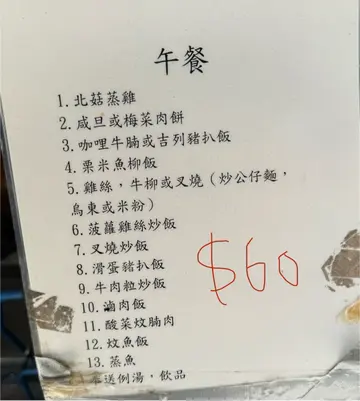 午餐
1.北菇蒸雞
2.咸旦或梅菜肉餅
3.咖哩牛腩或吉列豬扒飯
4.栗米魚柳飯
5.雞絲，牛柳或叉燒（炒公仔麵，
烏東或米粉）
6.菠蘿雞絲炒飯
7.叉燒炒飯
8.滑蛋豬扒飯
9.牛肉粒炒飯
10.滷肉飯
11.酸菜炆腩肉
12.炆魚飯
13.蒸魚
送例湯，飲品
$60